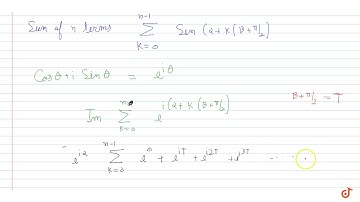 Sum of n terms n-1 ∑ K=0 Sin (2+K(β+π/2)
Cosθ+i Sinθ = e^iθ
Im ∑ K=0 e^i(2+K(β+π/2)
β+π/2 = T
e^i2 n-1 ∑ K=0 e^0 + e^iT + e^i2T + e^i3T ......